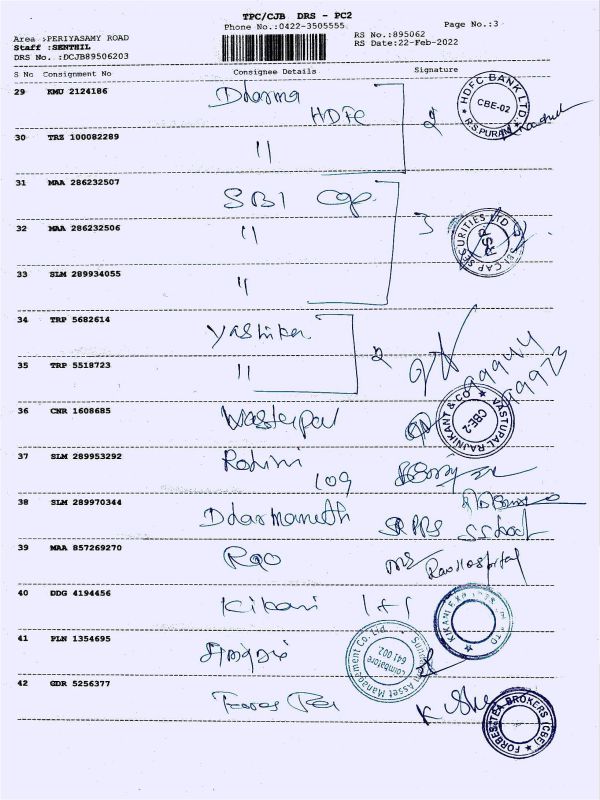 TPC/CJB DRS - PC2
Phone No.:0422-3505555
Page No.:3
Area :PERIYASAMY ROAD
RS No.:895062
Staff :SENTHIL
RS Date:22-Feb-2022
DRS No. :DCJB89506203
S No Consignment No Consignee Details Signature
29 KMU 2124186 Dharma
HDFC 2
HDFC BANK LTD. CBE-02 R.S PURAM
30 TRZ 100082289 "
31 MAA 286232507 SBI Cap
32 MAA 286232506 " 3
SBI CAP SECURITIES LTD RSP
33 SLM 289934055 "
34 TRP 5682614 Yashika
35 TRP 5518723 " 2
99944
99923
36 CNR 1608685
VASTUPAL-RAJNIKANT & CO CBE-2
37 SLM 289953292 Rohini
109
38 SLM 289970344 Dharmanath
39 MAA 857269270 Rao Rao Hospital
40 DDG 4194456 Kikani 1+1
KIKANI
41 PLN 1354695
Asset Management Co. Ltd. Coimbatore 641 002
42 GDR 5256377
FORBES TEA BROKERS (CBE)